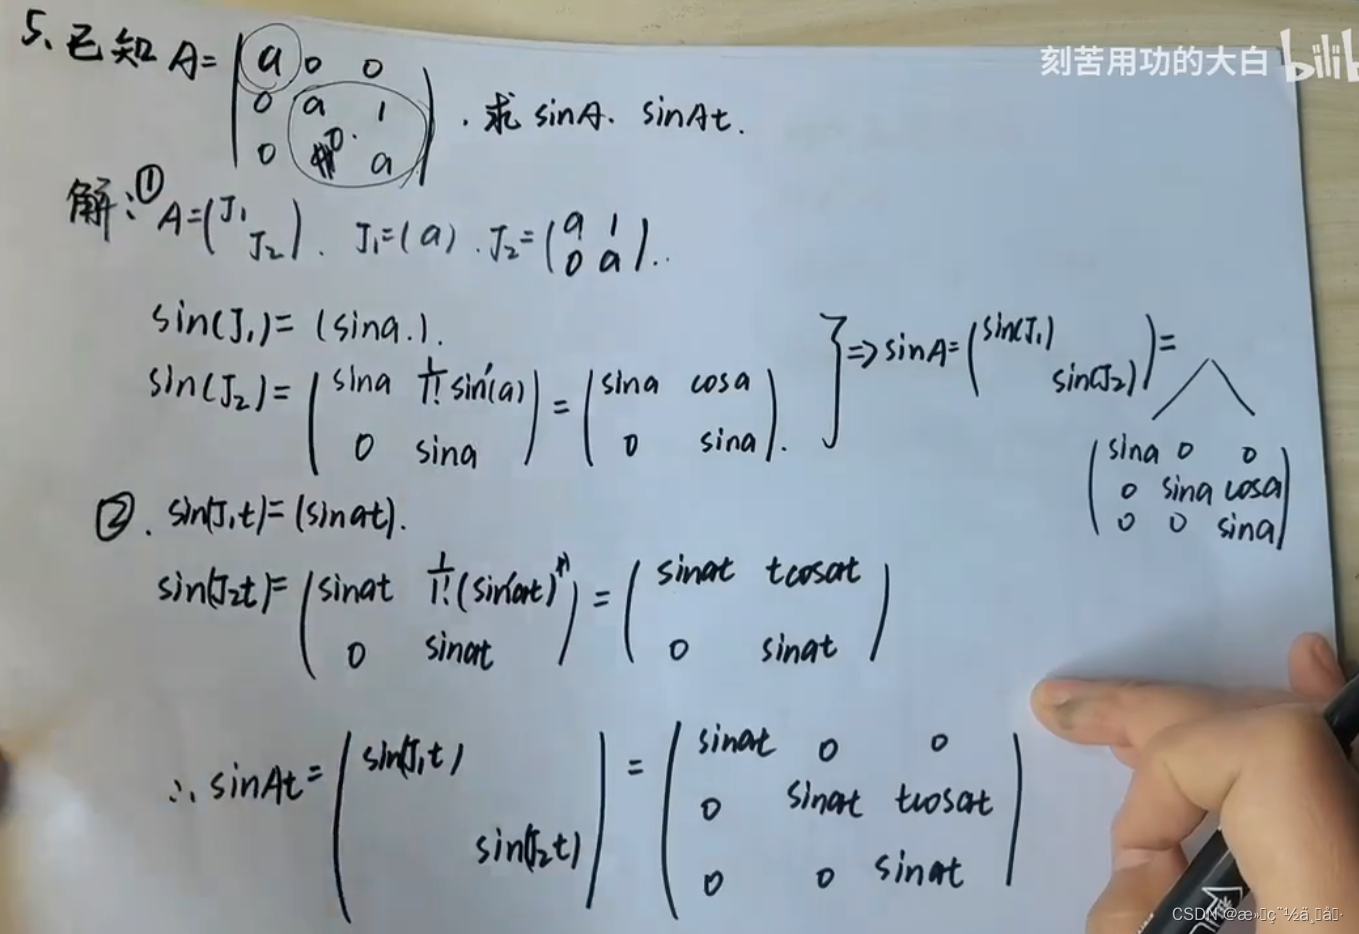 5、已知 A= ( a 0 0 . 求 sinA. sinAt.
0 a 1
0 0 a )
刻苦用功的大白 bilib
解: ① A=(J₁ J₂). J₁=(a). J₂=(a 1
0 a)..
sin(J₁)= (sina.).
sin(J₂)= (sina 1/1! sin'(a)
0 sina) = (sina cosa
0 sina).
} => sinA= (sin(J₁)
sin(J₂)) =
(sina 0 0
0 sina cosa
0 0 sina)
②. sin(J₁t)= (sinat).
sin(J₂t)= (sinat 1/1! (sinat)'
0 sinat) = (sinat tcosat
0 sinat)
∴ sinAt= (sin(J₁t)
sin(J₂t)) = (sinat 0 0
0 sinat tcosat
0 0 sinat)
CSDN @